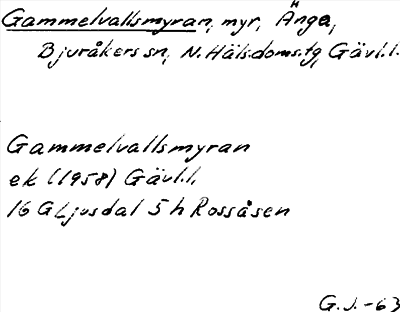 Gammelvallsmyran, myr, Änga,
Bjuråkers sn, N. Häls. doms.tg, Gävl.l.
Gammelvallsmyran
ek (1958) Gävl.l.
16 G Ljusdal 5 h Rossåsen
G. J. -63